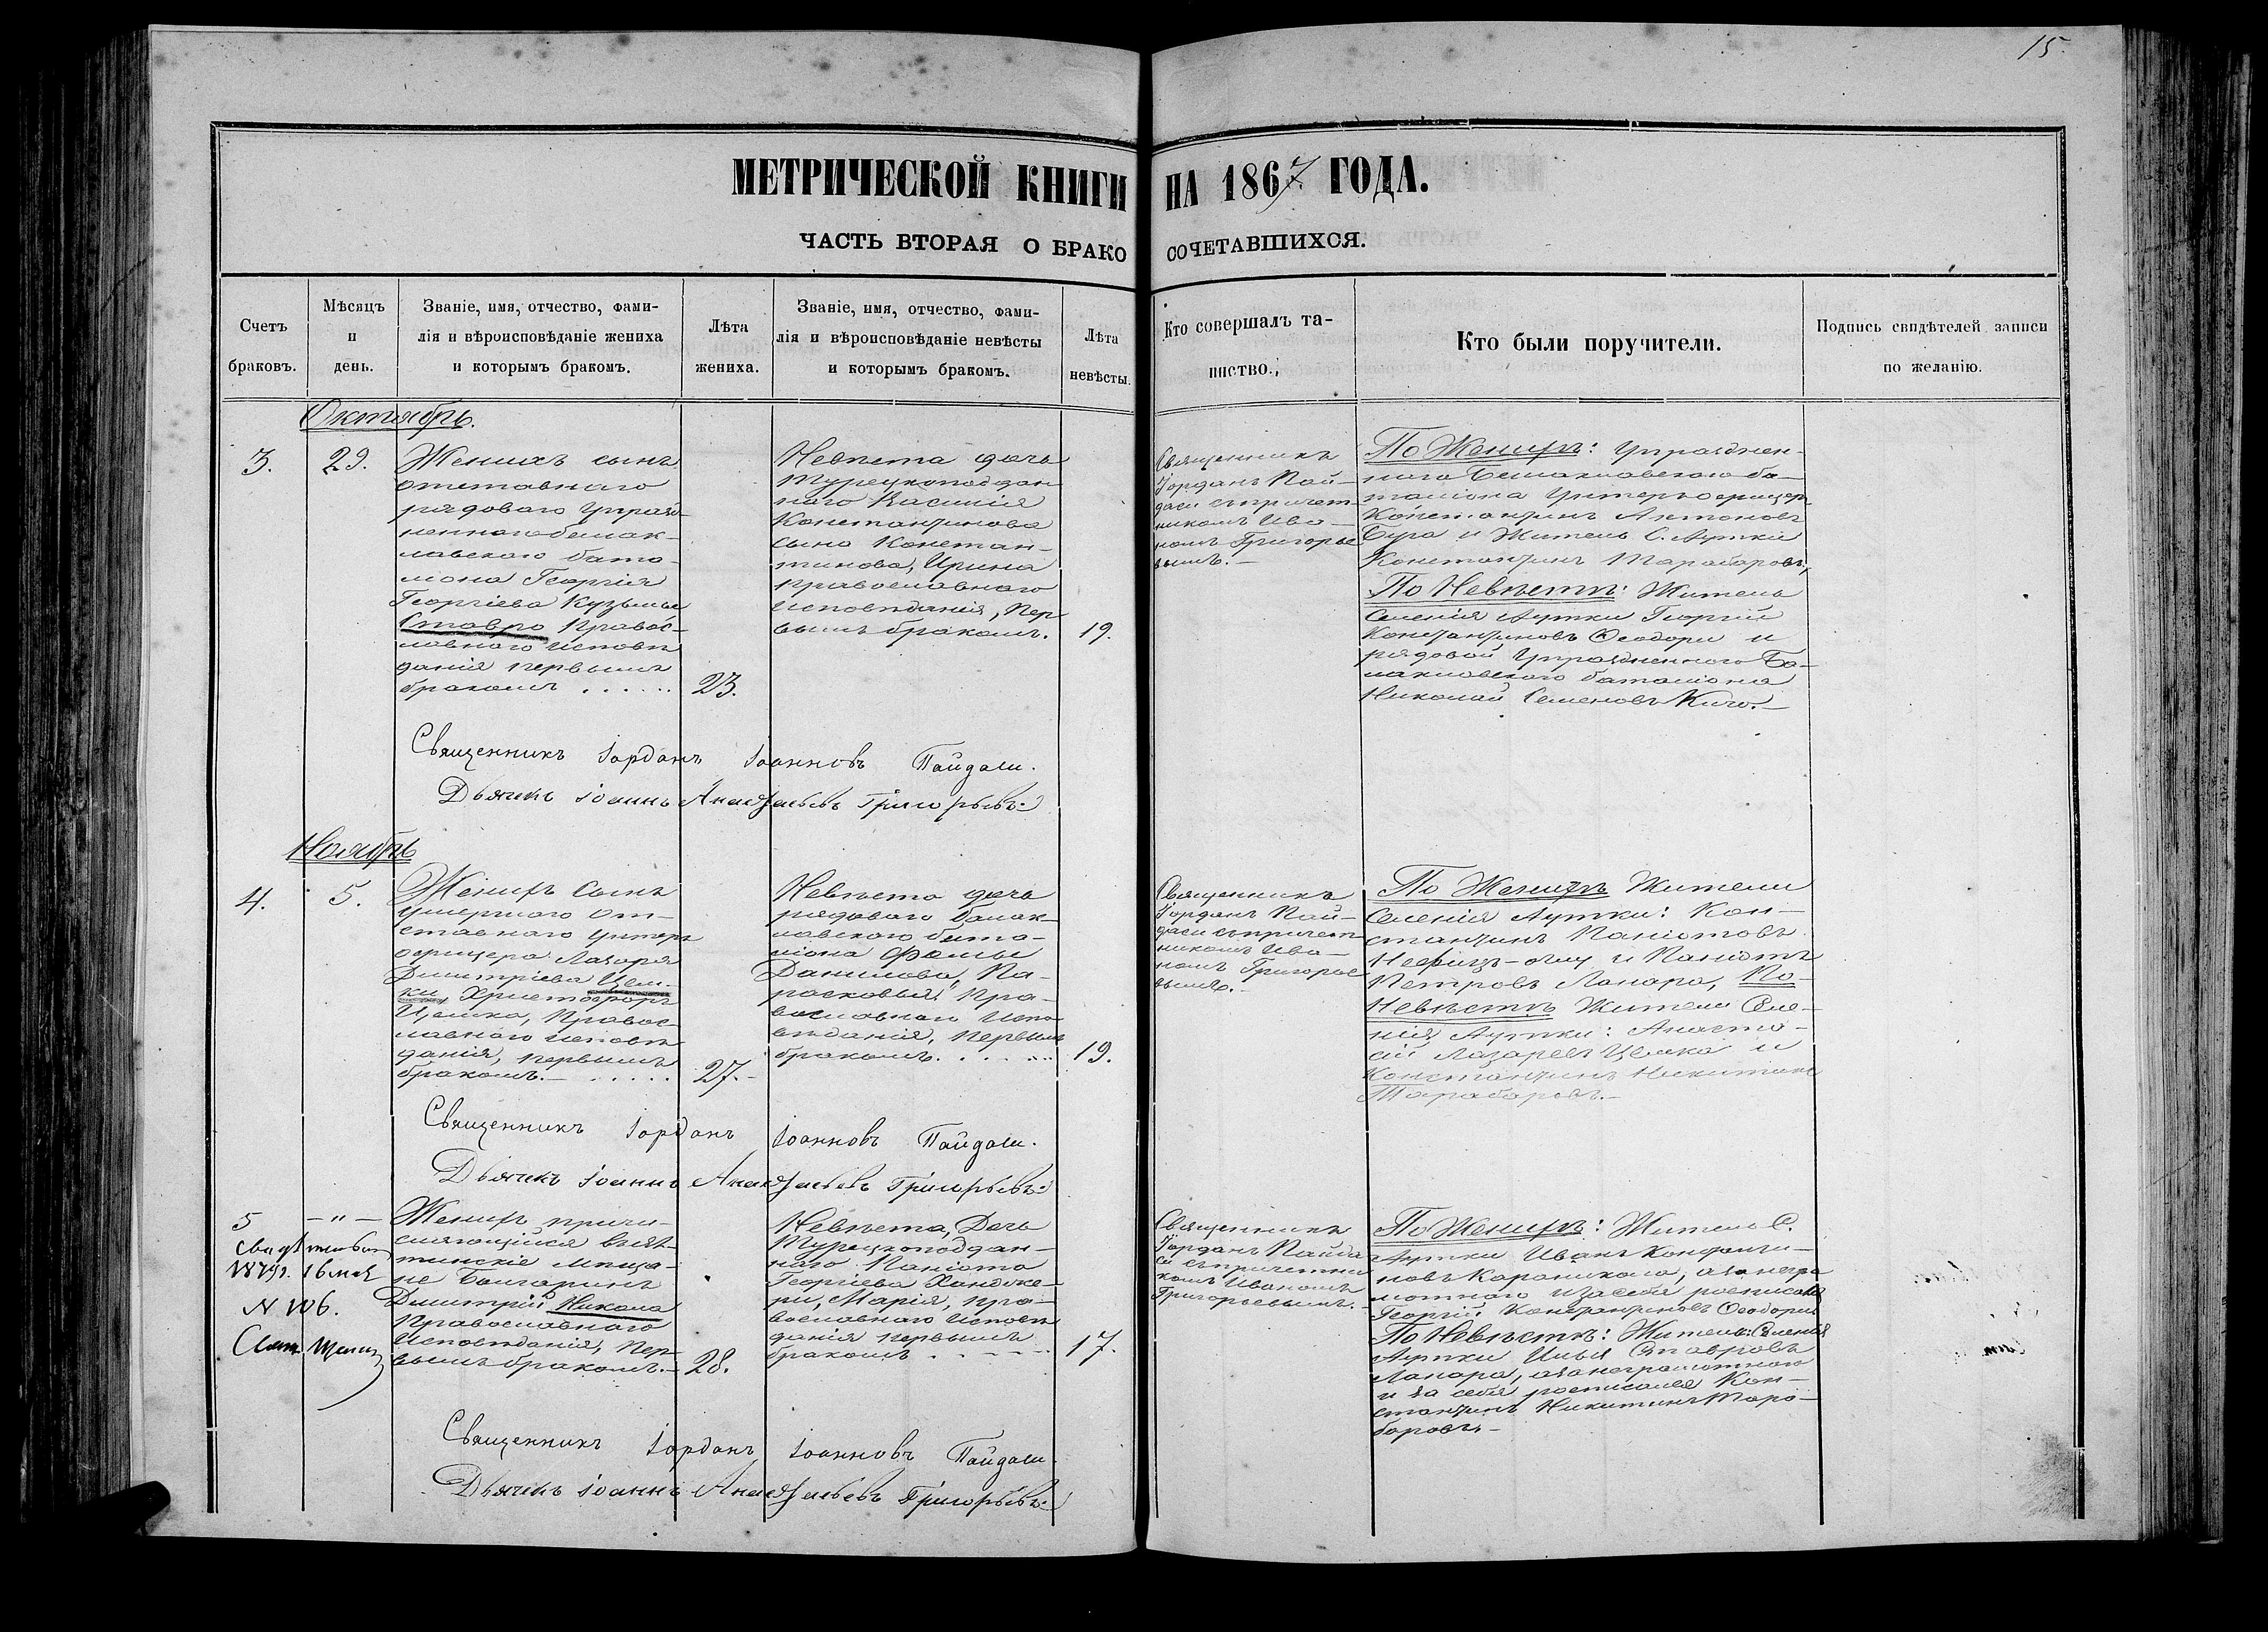 15
МЕТРИЧЕСКОЙ КНИГИ НА 1867 ГОДА.
ЧАСТЬ ВТОРАЯ О БРАКОСОЧЕТАВШИХСЯ.
Счетъ
браковъ.
Мѣсяцъ
и
день.
Званіе, имя, отчество, фами-
лія и вѣроисповѣданіе жениха
и которымъ бракомъ.
Лѣта
жениха.
Званіе, имя, отчество, фами-
лія и вѣроисповѣданіе невѣсты
и которымъ бракомъ.
Лѣта
невѣсты.
Кто совершалъ та-
инство.
Кто были поручители.
Подпись свидѣтелей записи
по желанію.
Октябрь.
3.
29.
Женихъ сынъ
отставнаго
рядоваго Упраз-
неннаго Балак-
лавскаго бата-
ліона Георгія
Георгіева Кузьмы
Ставро Правос-
лавнаго исповѣ
данія первымъ
бракомъ . . . . . .
23.
Невѣста дочь
Турецкоподдан
наго Василія
Константинова
сына Констан-
тинова, Ирина
православнаго
исповѣданія, пер
вымъ бракомъ.
19.
Священникъ
Іорданъ Пай-
даси съ причет
никомъ Ива-
номъ Григорье
вымъ.-
По Женихѣ: Упразднен-
наго Балаклавскаго ба-
таліона Унтеръ-офицеръ
Константинъ Антоновъ
Бура и Житель С. Аутки
Константинъ Тарабаровъ,
По Невѣстѣ: Житель
Селенія Аутки Георгій
Константиновъ Феодори и
рядовой Упраздненнаго Ба-
лаклавскаго баталіона
Николай Семеновъ Кичо.-
Священникъ Іорданъ Іоанновъ Пайдаси.
Дьячекъ Іоаннъ Анастасьевъ Григорьевъ.
Ноябрь
4.
5.
Женихъ Сынъ
умершаго от-
ставнаго унтеръ
офицера Лазаря
Димитріева Цем-
ки, Христофоръ
Цемка, Правос-
лавнаго исповѣ
данія, первымъ
бракомъ.- . . . . .
27.-
Невѣста дочь
рядоваго Балак-
лавскаго бата-
ліона Фомы
Данилова, Па-
расковья Пра-
вославнаго Испо-
вѣданія, Первымъ
бракомъ. . . . . .
19.
Священникъ
Іорданъ Пай-
даси съ причет
никомъ Ива-
номъ Григорье
вымъ.-
По Женихѣ Жители
Селенія Аутки: Кон-
стантинъ Паніотовъ
и Паніотъ
Петровъ Лапара, По-
Невѣстѣ Жители Селе-
нія Аутки: Анаста-
сій Лазаревъ Цемка и
Константинъ Никитинъ
Тарабаровъ.-
Священникъ Іорданъ Іоанновъ Пайдаси.
Дьячекъ Іоаннъ Анастасьевъ Григорьевъ.
5
- " -
1879 г. 16 мая
N 106.
Женихъ причи-
сляющійся въ Ял-
тинскіе мѣща-
не Болгаринъ
Димитрій Никола
Православнаго
Исповѣданія, Пер-
вымъ бракомъ.-
28.
Невѣста, Дочь
Турецкоподдан-
наго Паніота
Георгіева Хандже-
ри, Марія, пра-
вославнаго Исповѣ
данія первымъ
бракомъ . . . . .
17.
Священникъ
Іорданъ Пайда
си съ причетни
комъ Иваномъ
Григорьевымъ.-
По Женихѣ: Житель С.
Аутки Иванъ Константи-
новъ Караникола, а за негра
мотнаго и за себя росписался
Георгій Константиновъ Феодори
По Невѣстѣ: Житель Селенія
Аутки Илья Ставровъ
Лапара, а за неграмотнаго
и за себя росписался Кон-
стантинъ Никитинъ Тара-
баровъ.-
Священникъ Іорданъ Іоанновъ Пайдаси.
Дьячекъ Іоаннъ Анастасьевъ Григорьевъ.